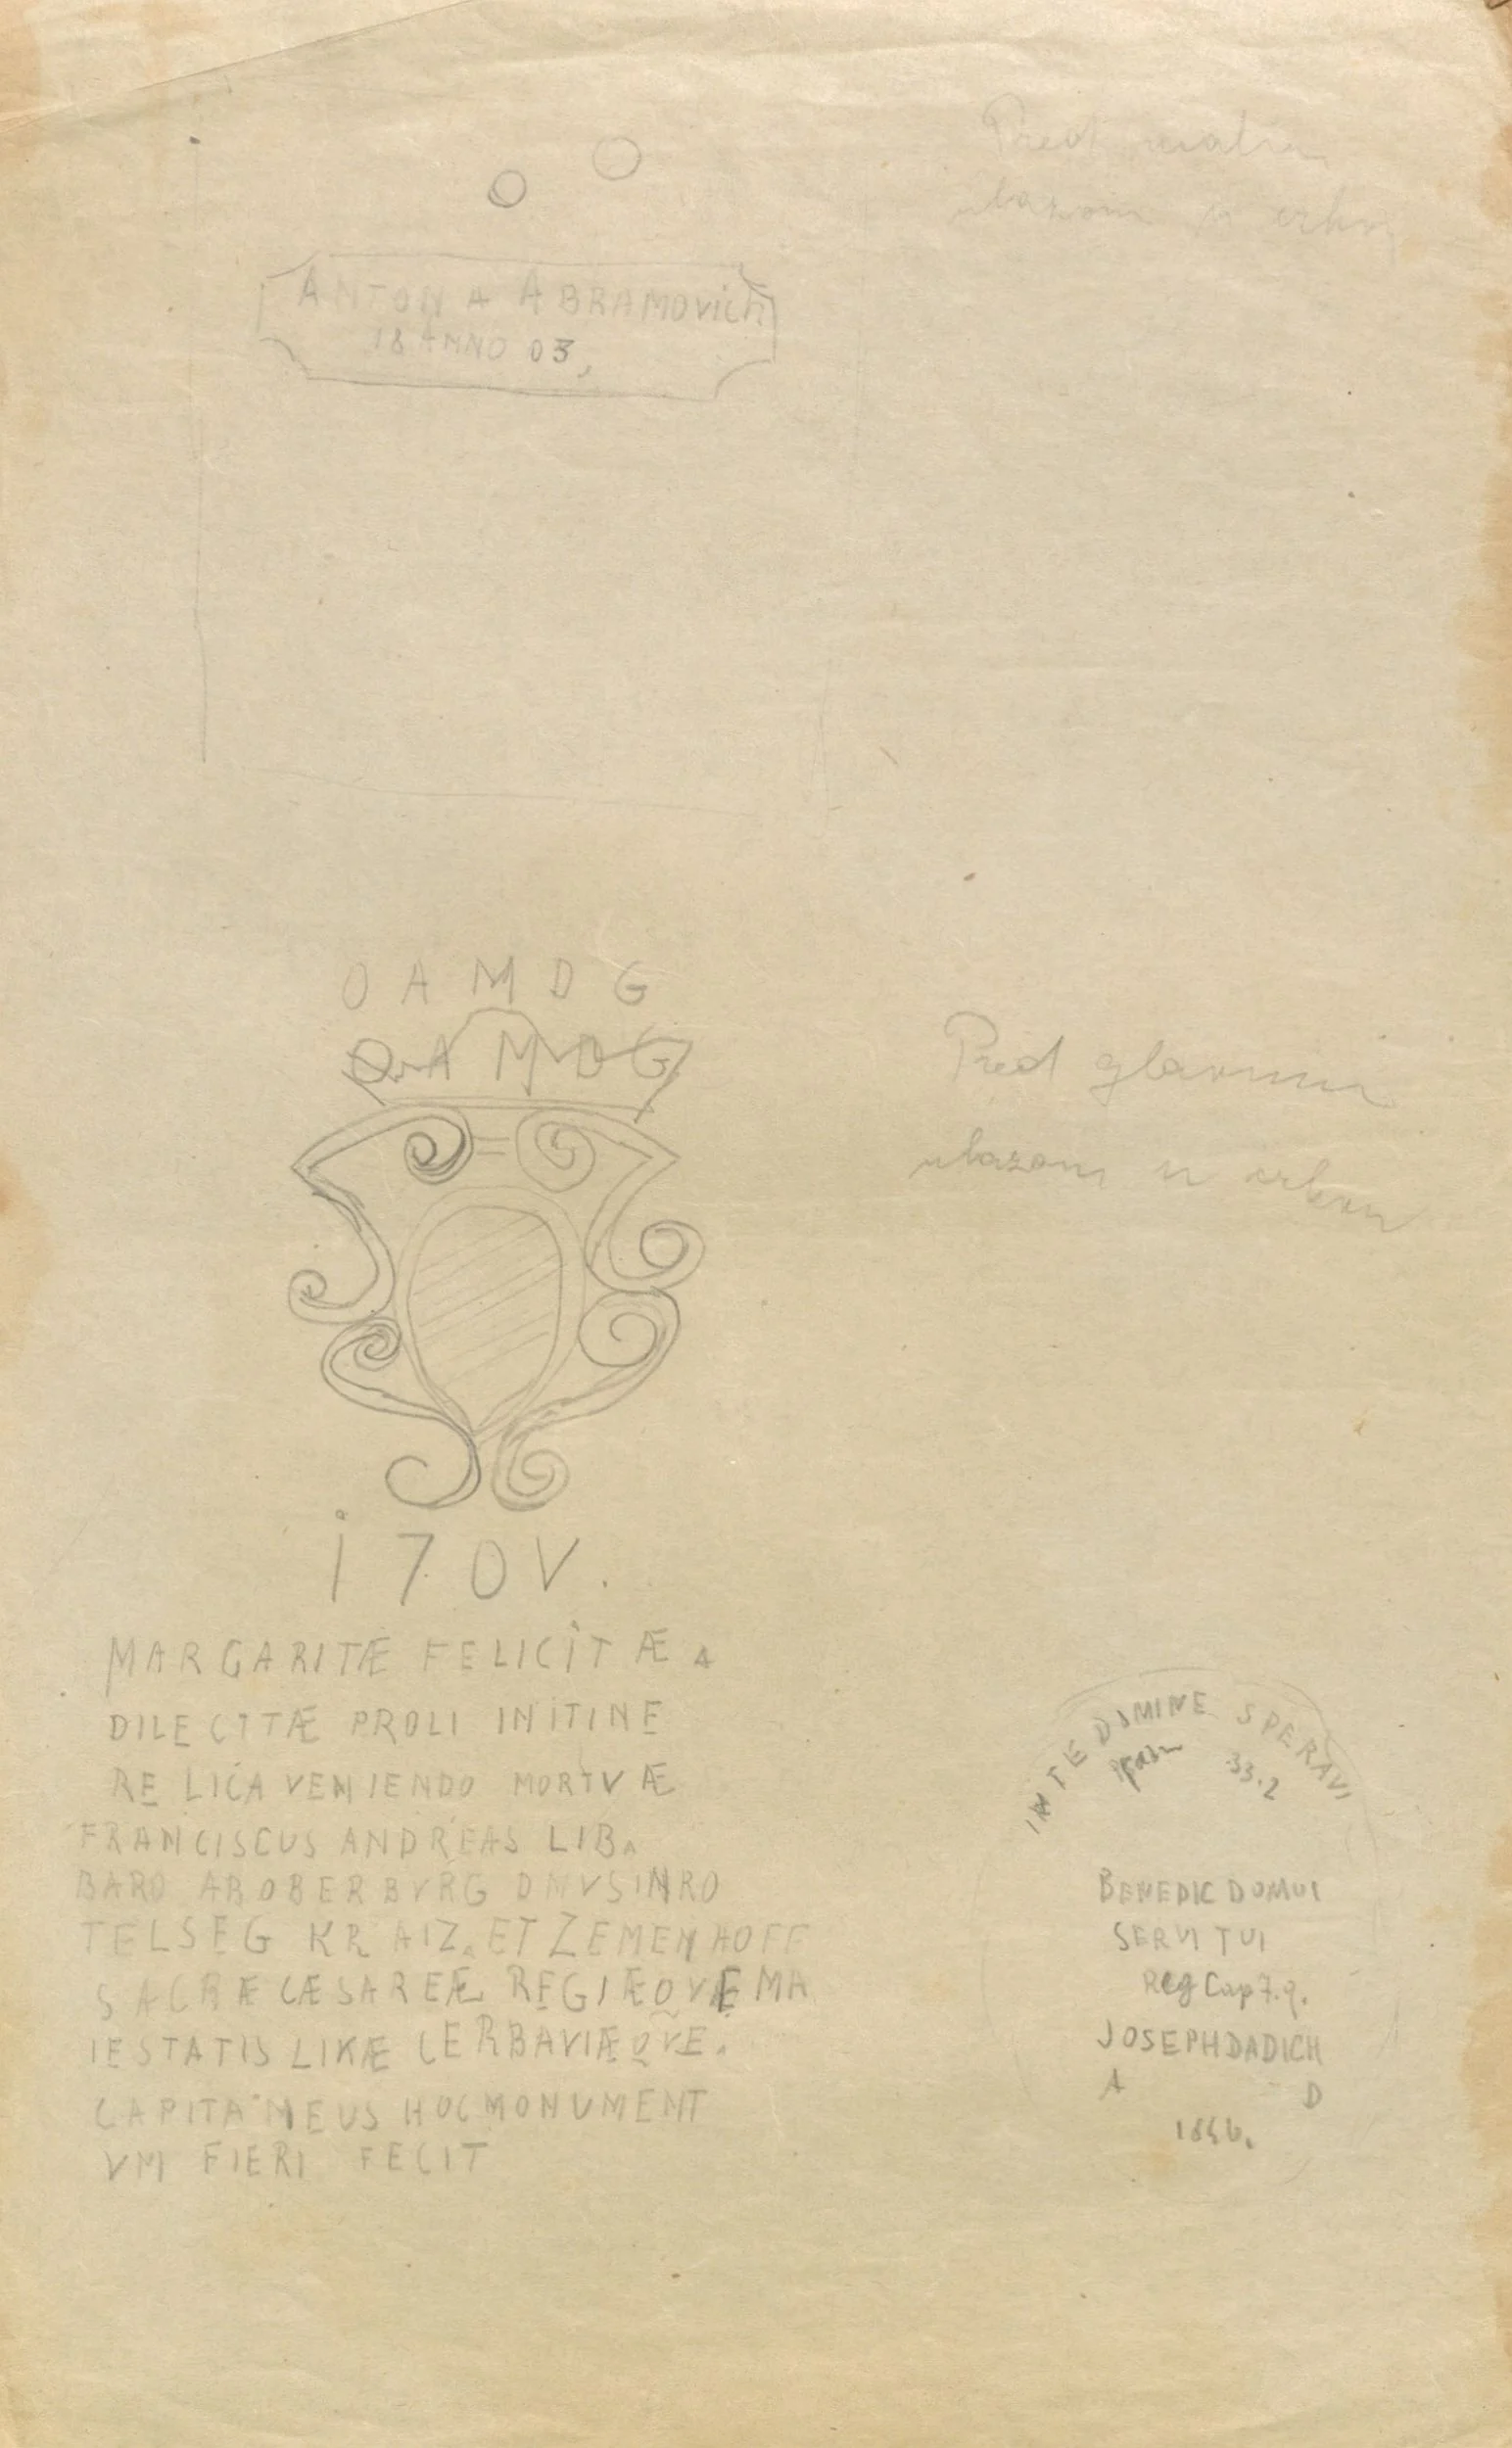 Pred malim
ulazom u crkvu
ANTON A ABRAMOVICH
18 ANNO 03,
O A M D G
O A M D G
Pred glavnim
ulazom u crkvu
i 7 0 V.
MARGARITÆ FELICIT Æ
DILECTTÆ PROLI IN ITINE
RE LICA VENIENDO MORTVÆ
FRANCISCUS ANDREAS LIB.
BARO AB OBERBVRG DNVSINRO
TELSEG KRAIZ. ET ZEMENHOFF
SACRÆ CÆSAREÆ REGIÆQVE MA
IESTATIS LIKÆ CERBAVIÆQVE.
CAPITANEUS HOC MONUMENT
VM FIERI FECIT
IN TE DOMINE SPERAVI
Psam 33.2
BENEDIC DOMUI
SERVI TUI
Reg Cap 7.9.
JOSEPH DADICH
A D
1846.